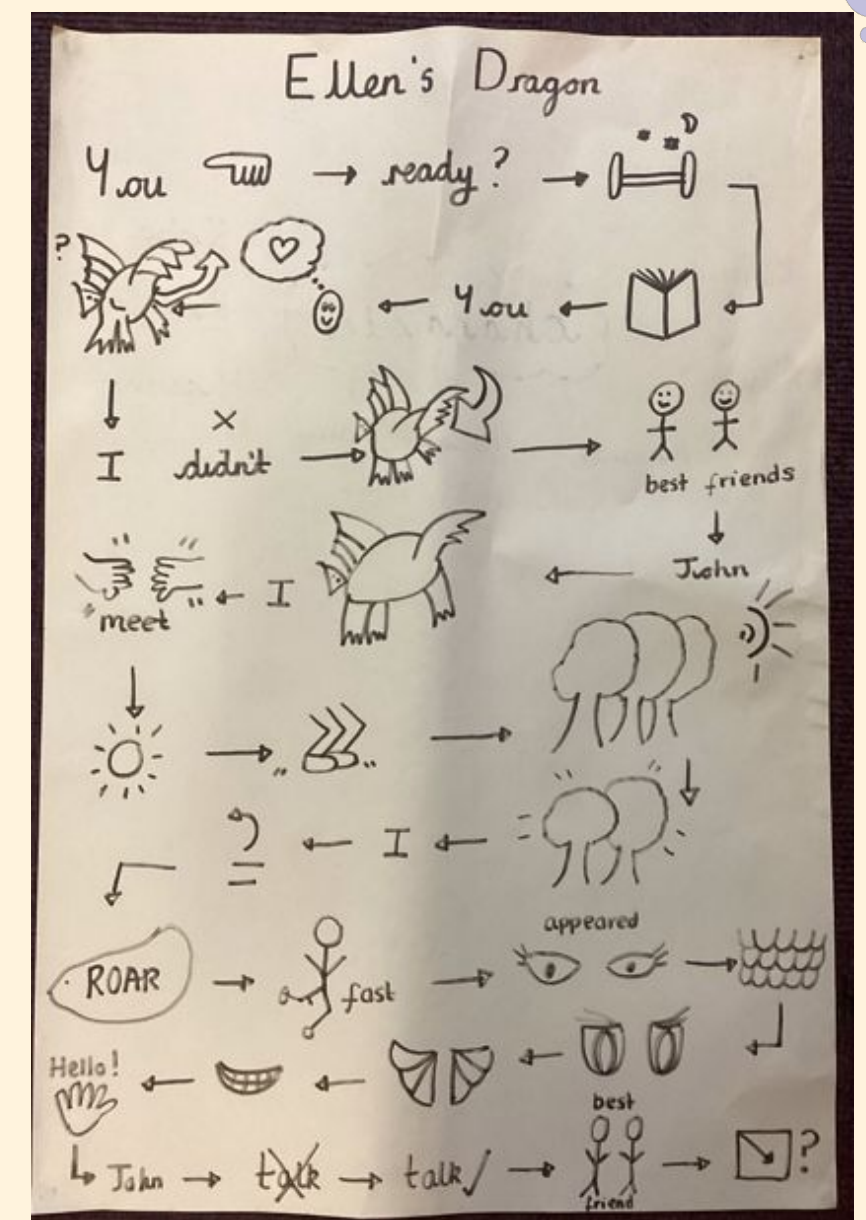 Ellen's Dragon
You ready?
You
?
I didn't
best friends
John
I
meet
I
appeared
ROAR
fast
Hello!
best
John talk talk ?
friend